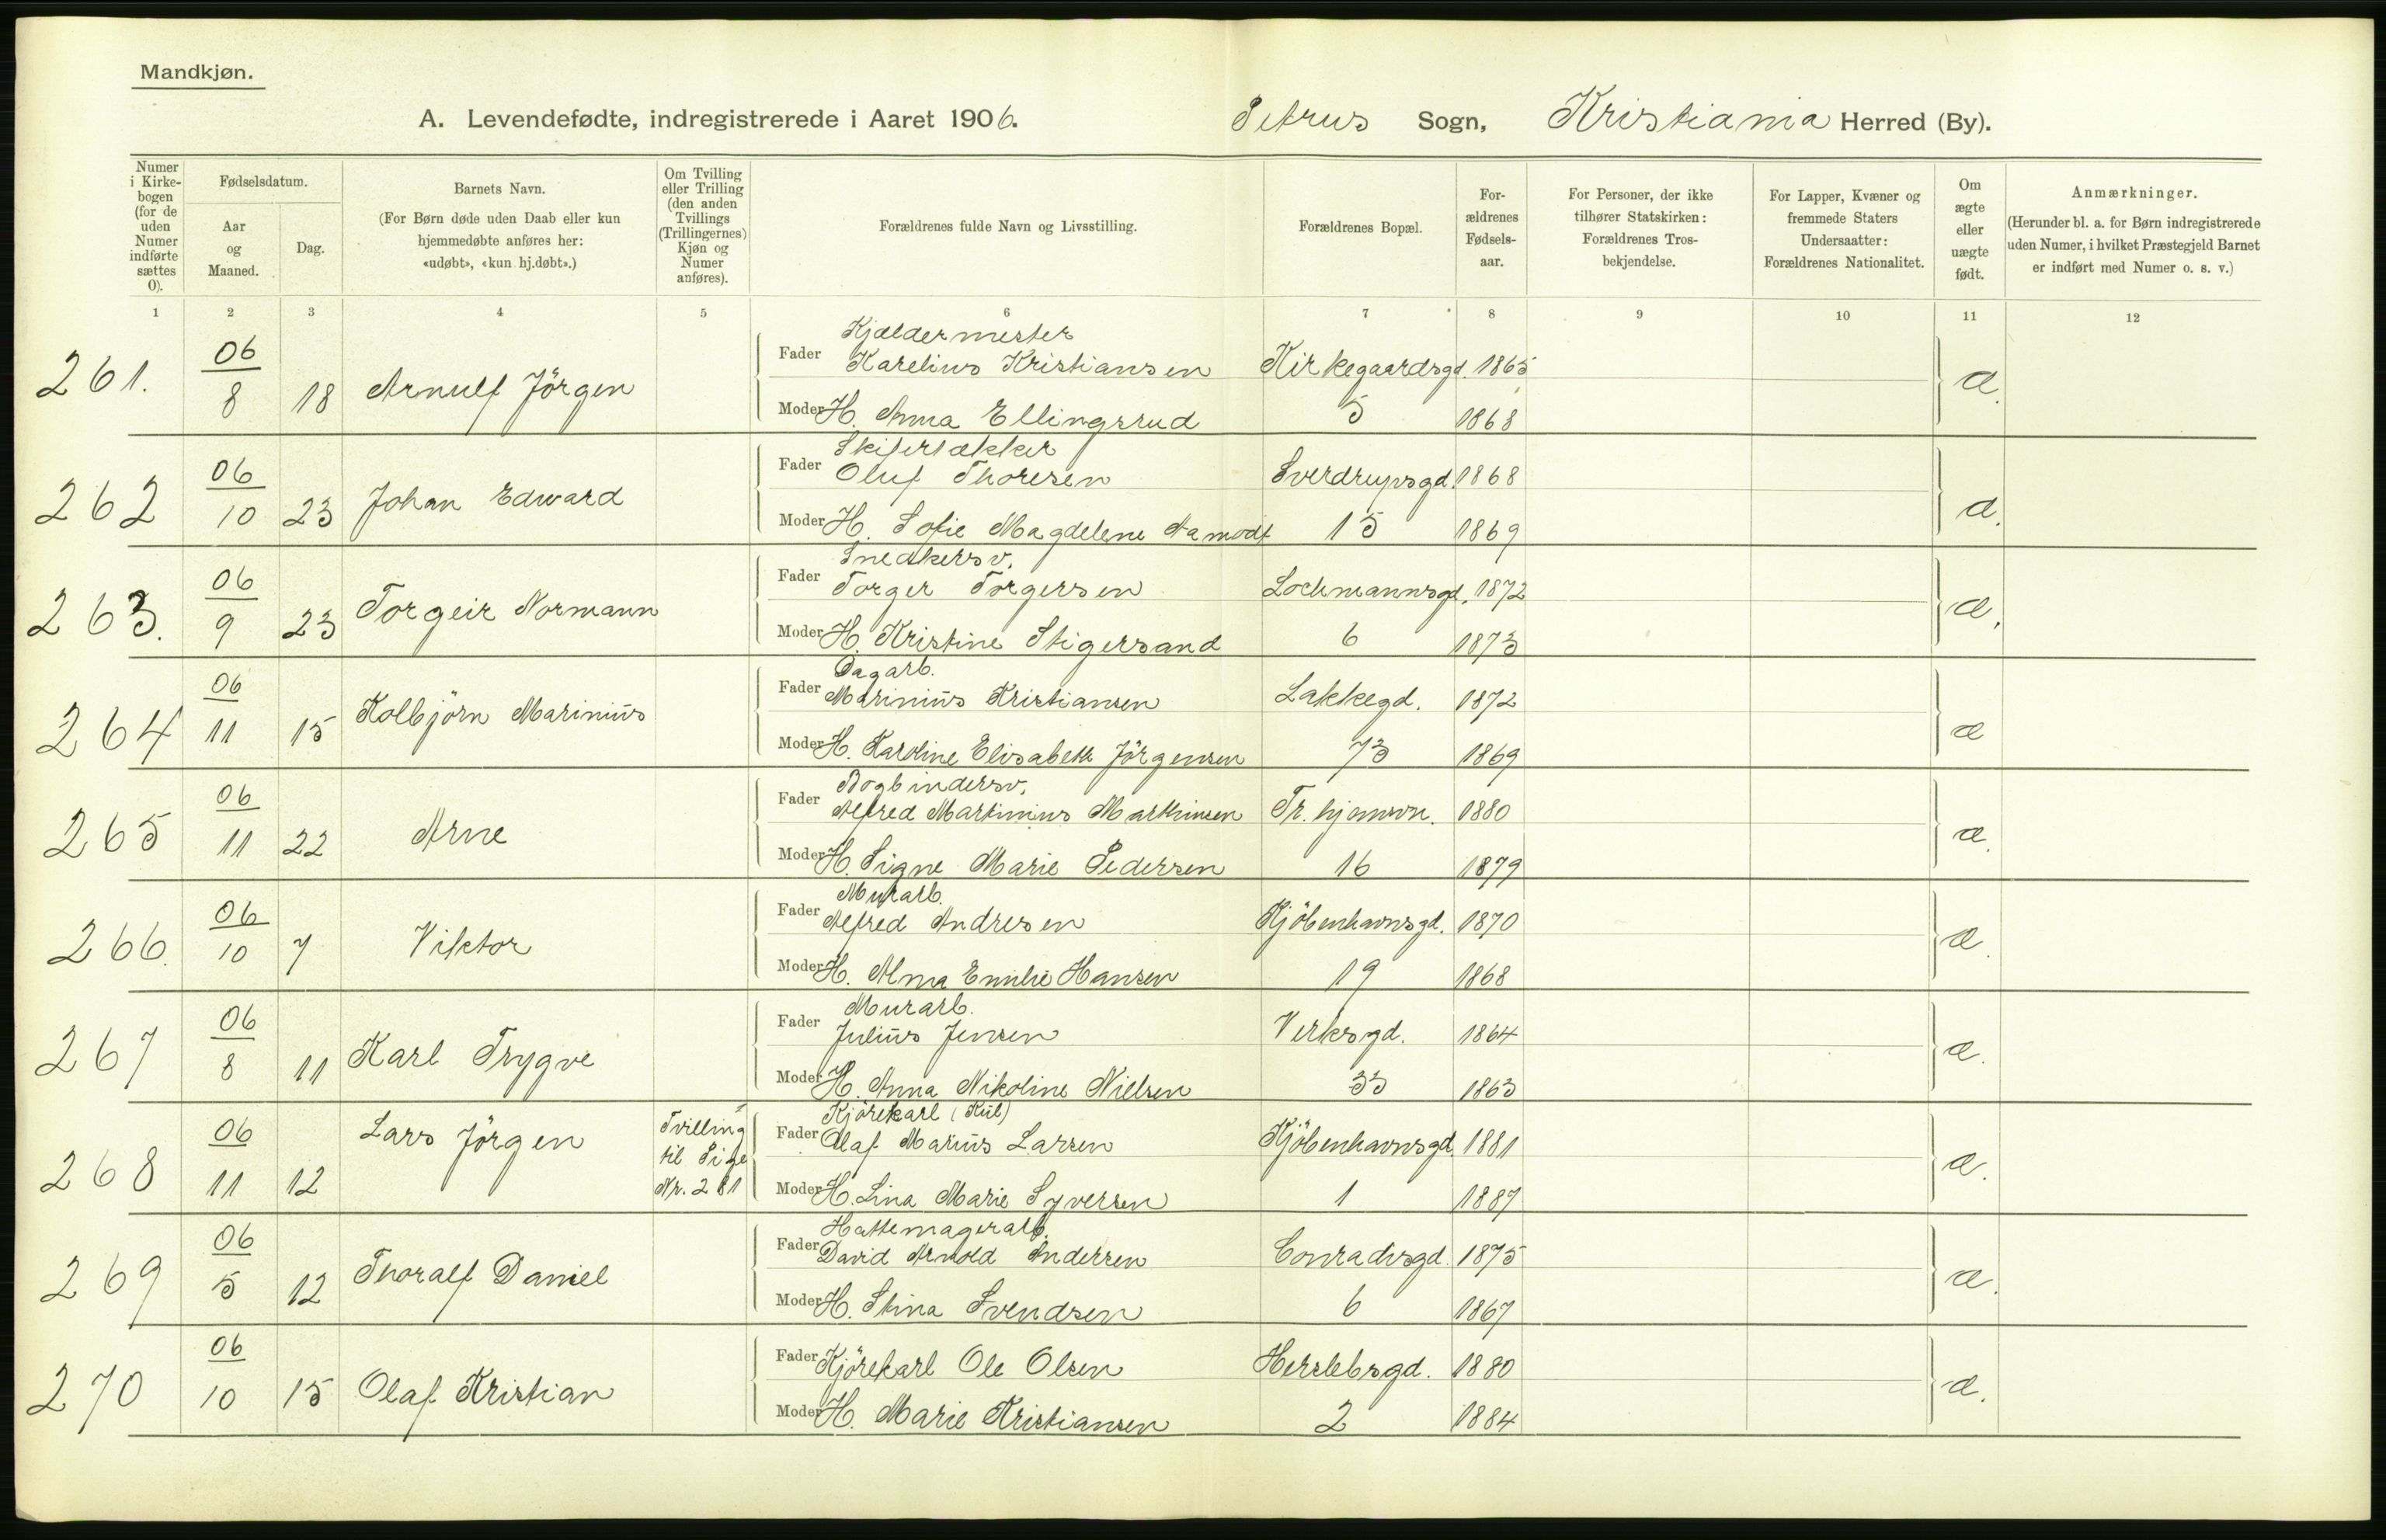 Mandkjøn.
A. Levendefødte, indregistrerede i Aaret 1906. Petrus Sogn, Kristiania Herred (By).
Numer i Kirkebogen (for de uden Numer indførte sættes 0).
Fødselsdatum.
Aar og Maaned.
Dag.
Barnets Navn.
(For Børn døde uden Daab eller kun hjemmedøbte anføres her: «udøbt», «kun hj.døbt».)
Om Tvilling eller Trilling (den anden Tvillings (Trillingernes) Kjøn og Numer anføres).
Forældrenes fulde Navn og Livsstilling.
Forældrenes Bopæl.
Forældrenes Fødselsaar.
For Personer, der ikke tilhører Statskirken: Forældrenes Trosbekjendelse.
For Lapper, Kvæner og fremmede Staters Undersaatter: Forældrenes Nationalitet.
Om ægte eller uægte født.
Anmærkninger.
(Herunder bl. a. for Børn indregistrerede uden Numer, i hvilket Præstegjeld Barnet er indført med Numer o. s. v.)
1 2 3 4 5 6 7 8 9 10 11 12
Kjældermester
261. 06/8 18 Arnulf Jörgen Fader Karelius Kristiansen Kirkegaardsgd. 1865 æ.
Moder H. Anna Ellingsrud 5 1868
Skifertækker
262 06/10 23 Johan Edward Fader Oluf Thoresen Sverdrupsgd. 1868 æ.
Moder H. Sofie Magdelene Aamodt 15 1869
Snedkersv.
263. 06/9 23 Torgeir Normann Fader Torger Torgersen Lochmannsgd. 1872 æ.
Moder H. Kristine Stigersand 6 1873
Dagarb.
264 06/11 15 Kolbjörn Marinius Fader Marinius Kristiansen Lakkegd. 1872 æ
Moder H. Karoline Elisabeth Jörgensen 73 1869
Bogbindersv.
265 06/11 22 Arne Fader Alfred Martinius Marthinsen Tr.hjemsvn. 1880 æ.
Moder H. Signe Marie Pedersen 16 1879
Murarb.
266. 06/10 7 Viktor Fader Alfred Andresen Kjöbenhavnsgd. 1870 æ.
Moder H. Alma Emilie Hansen 19 1868
Murarb.
267 06/8 11 Karl Trygve Fader Julius Jensen Verksgd. 1864 æ.
Moder H. Anna Nikoline Nielsen 33 1863
Kjörekarl (Kul)
268 06/11 12 Lars Jörgen Tvilling til Pige Nr. 281 Fader Olaf Marius Larsen Kjöbenhavnsgd. 1881 æ.
Moder H. Lina Marie Syversen 1 1887
Hattemagerarb.
269 06/5 12 Thoralf Daniel Fader David Arnold Andersen Conradisgd. 1875 æ.
Moder H. Stina Svendsen 6 1867
270 06/10 15 Olaf Kristian Fader Kjörekarl Ole Olsen Herslebsgd. 1880 æ.
Moder H. Marie Kristiansen 2 1884